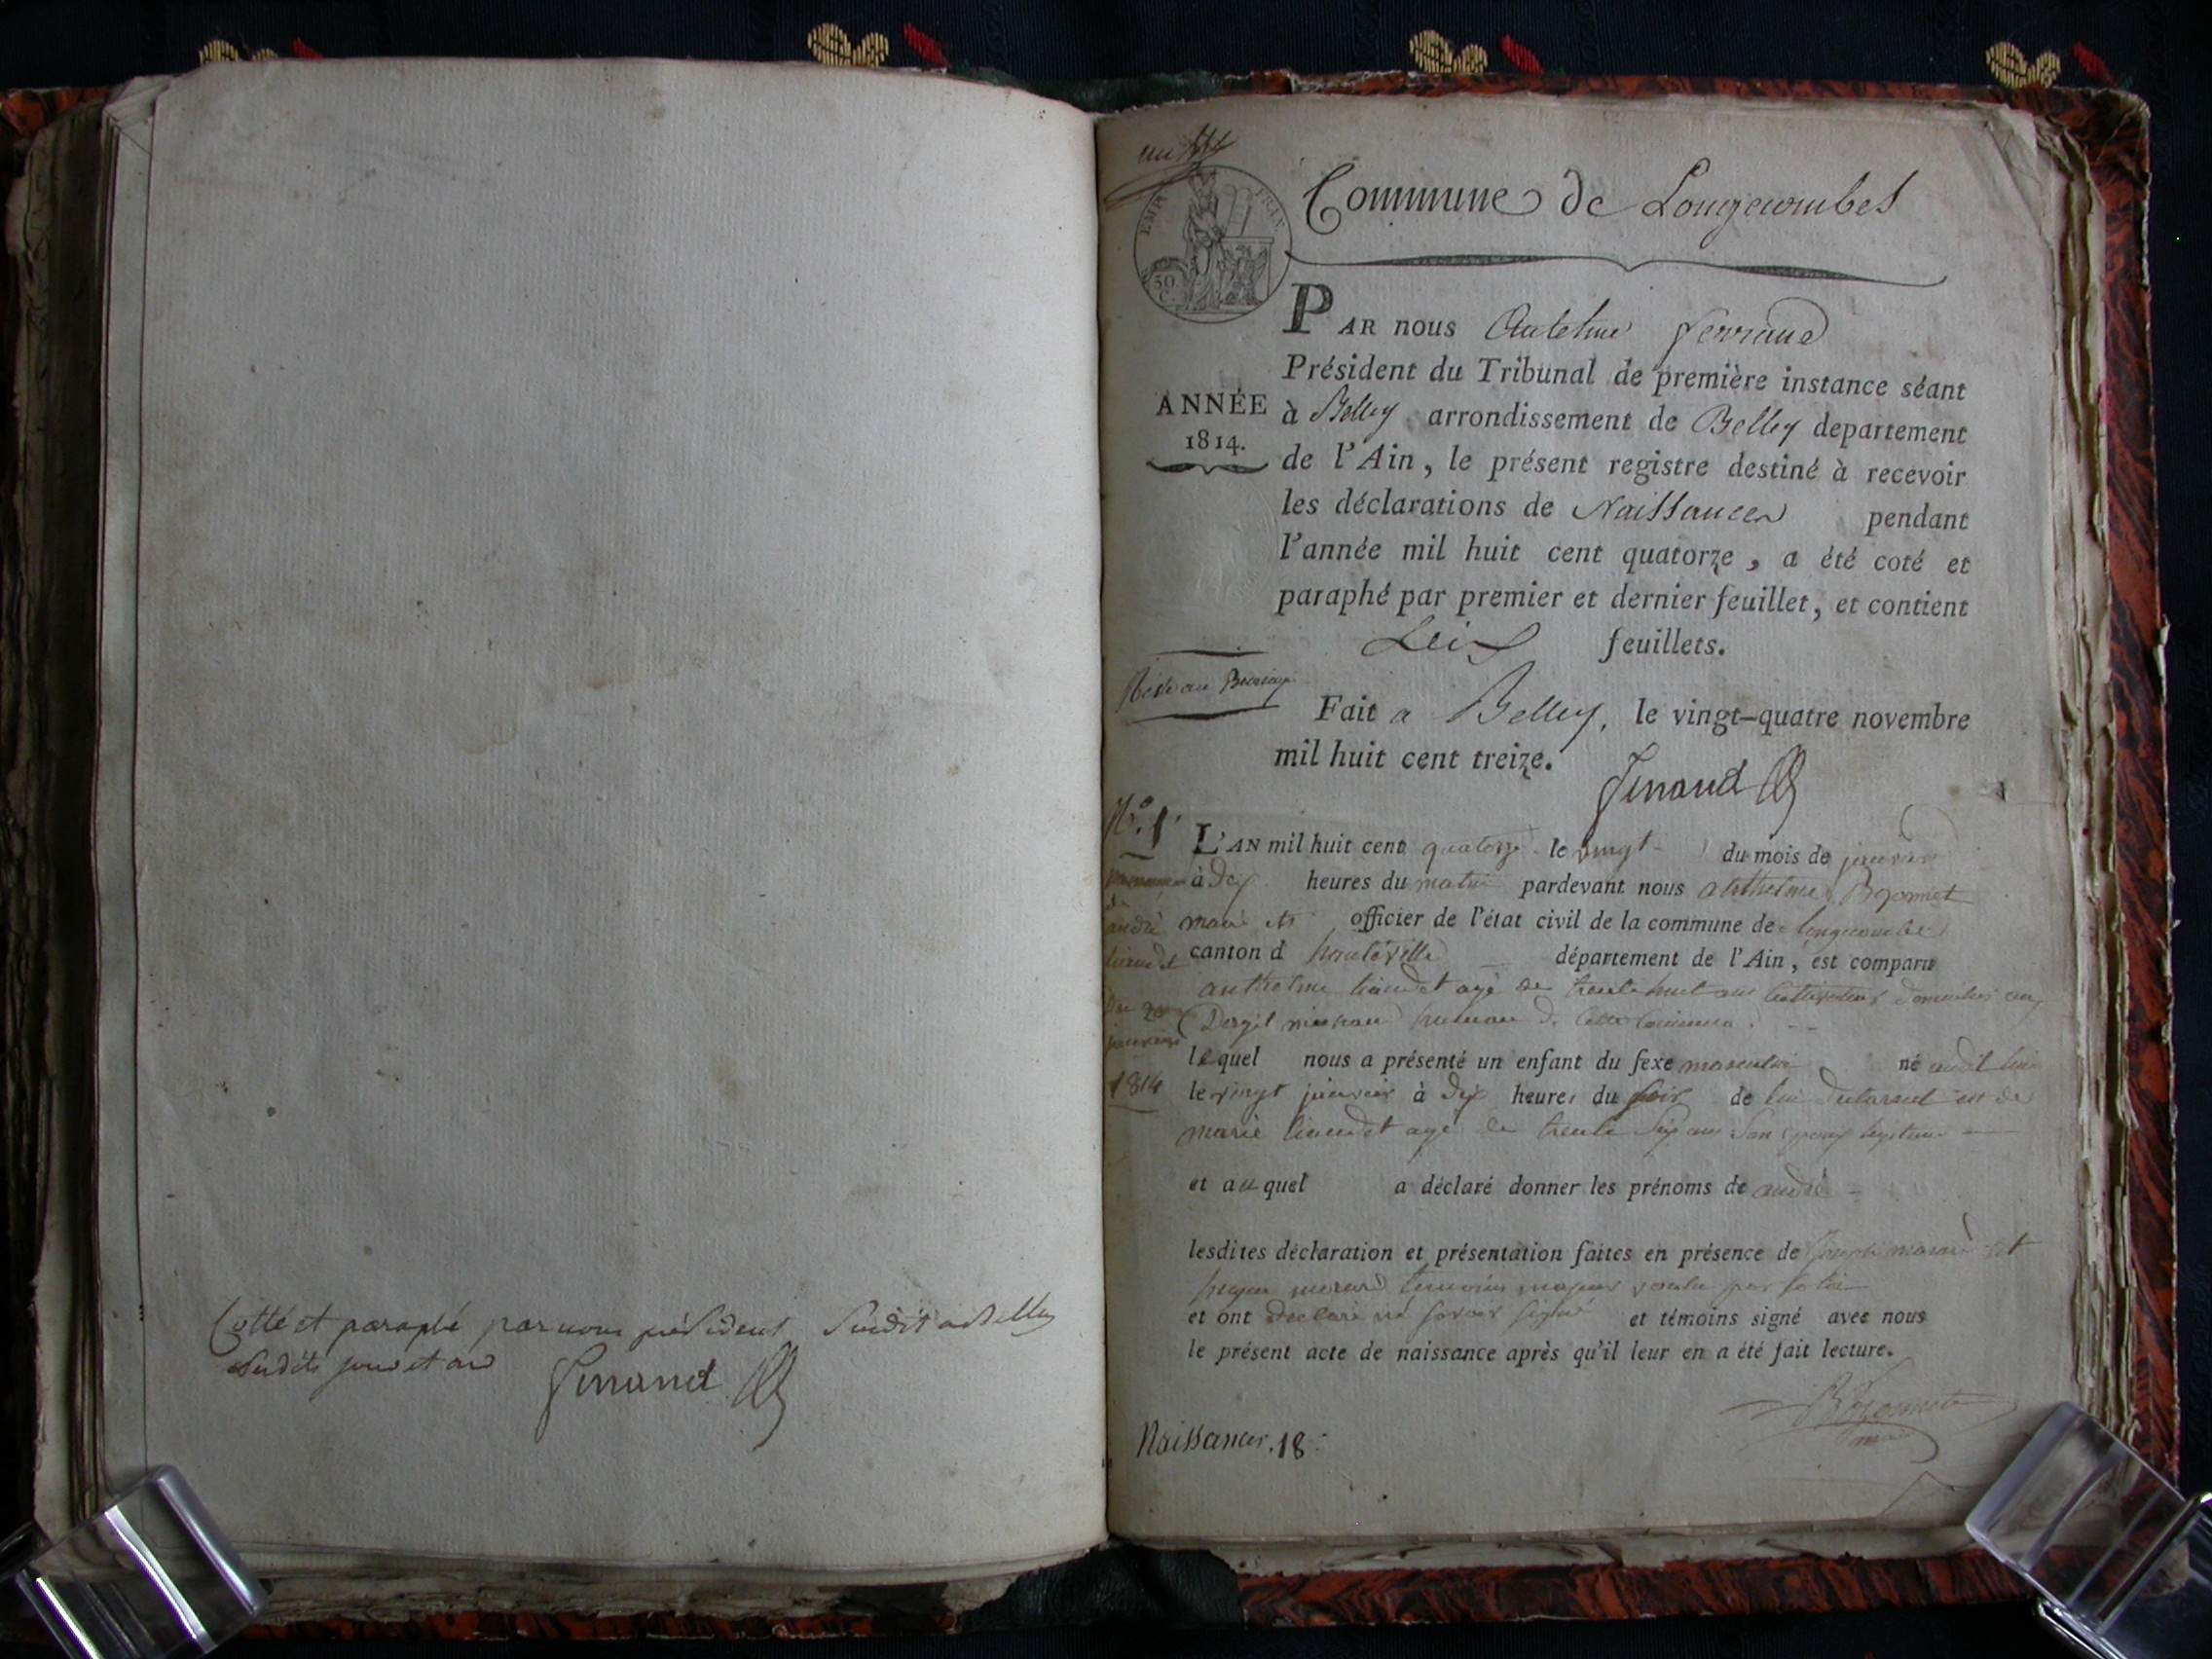 Cotté et paraphé par nous président susdit à Belley
susdits jour et an Ferrand
EMP FRAN
50 C.
Commune de Longecombes
ANNÉE
1814.
PAR nous Antelme Ferrand
Président du Tribunal de première instance séant
à Belley arrondissement de Belley departement
de l'Ain, le présent registre destiné à recevoir
les déclarations de Naissances pendant
l'année mil huit cent quatorze, a été coté et
paraphé par premier et dernier feuillet, et contient
Six feuillets.
Fait a Belley, le vingt-quatre novembre
mil huit cent treize.
Ferrand
N.° 1.
andré
liaudet
Du 20
janvier
1814
L'AN mil huit cent quatorze le vingt du mois de janvier
à dix heures du matin pardevant nous anthelme Bozonnet
maire officier de l'état civil de la commune de longecombe
canton d hauteville département de l'Ain, est comparu
anthelme liaudet agé de trente huit ans cultivateur domicilié au
hameau de cette commune.
lequel nous a présenté un enfant du sexe masculin né audit lieu
le vingt janvier à dix heures du soir de lui déclarant et de
marie liaudet agé de trente six ans son
et auquel a déclaré donner les prénoms de andré
lesdites déclaration et présentation faites en présence de joseph et
témoins majeurs
et ont declaré ne savoir signé et témoins signé avec nous
le présent acte de naissance après qu'il leur en a été fait lecture.
Bozonnet
Naissances. 18